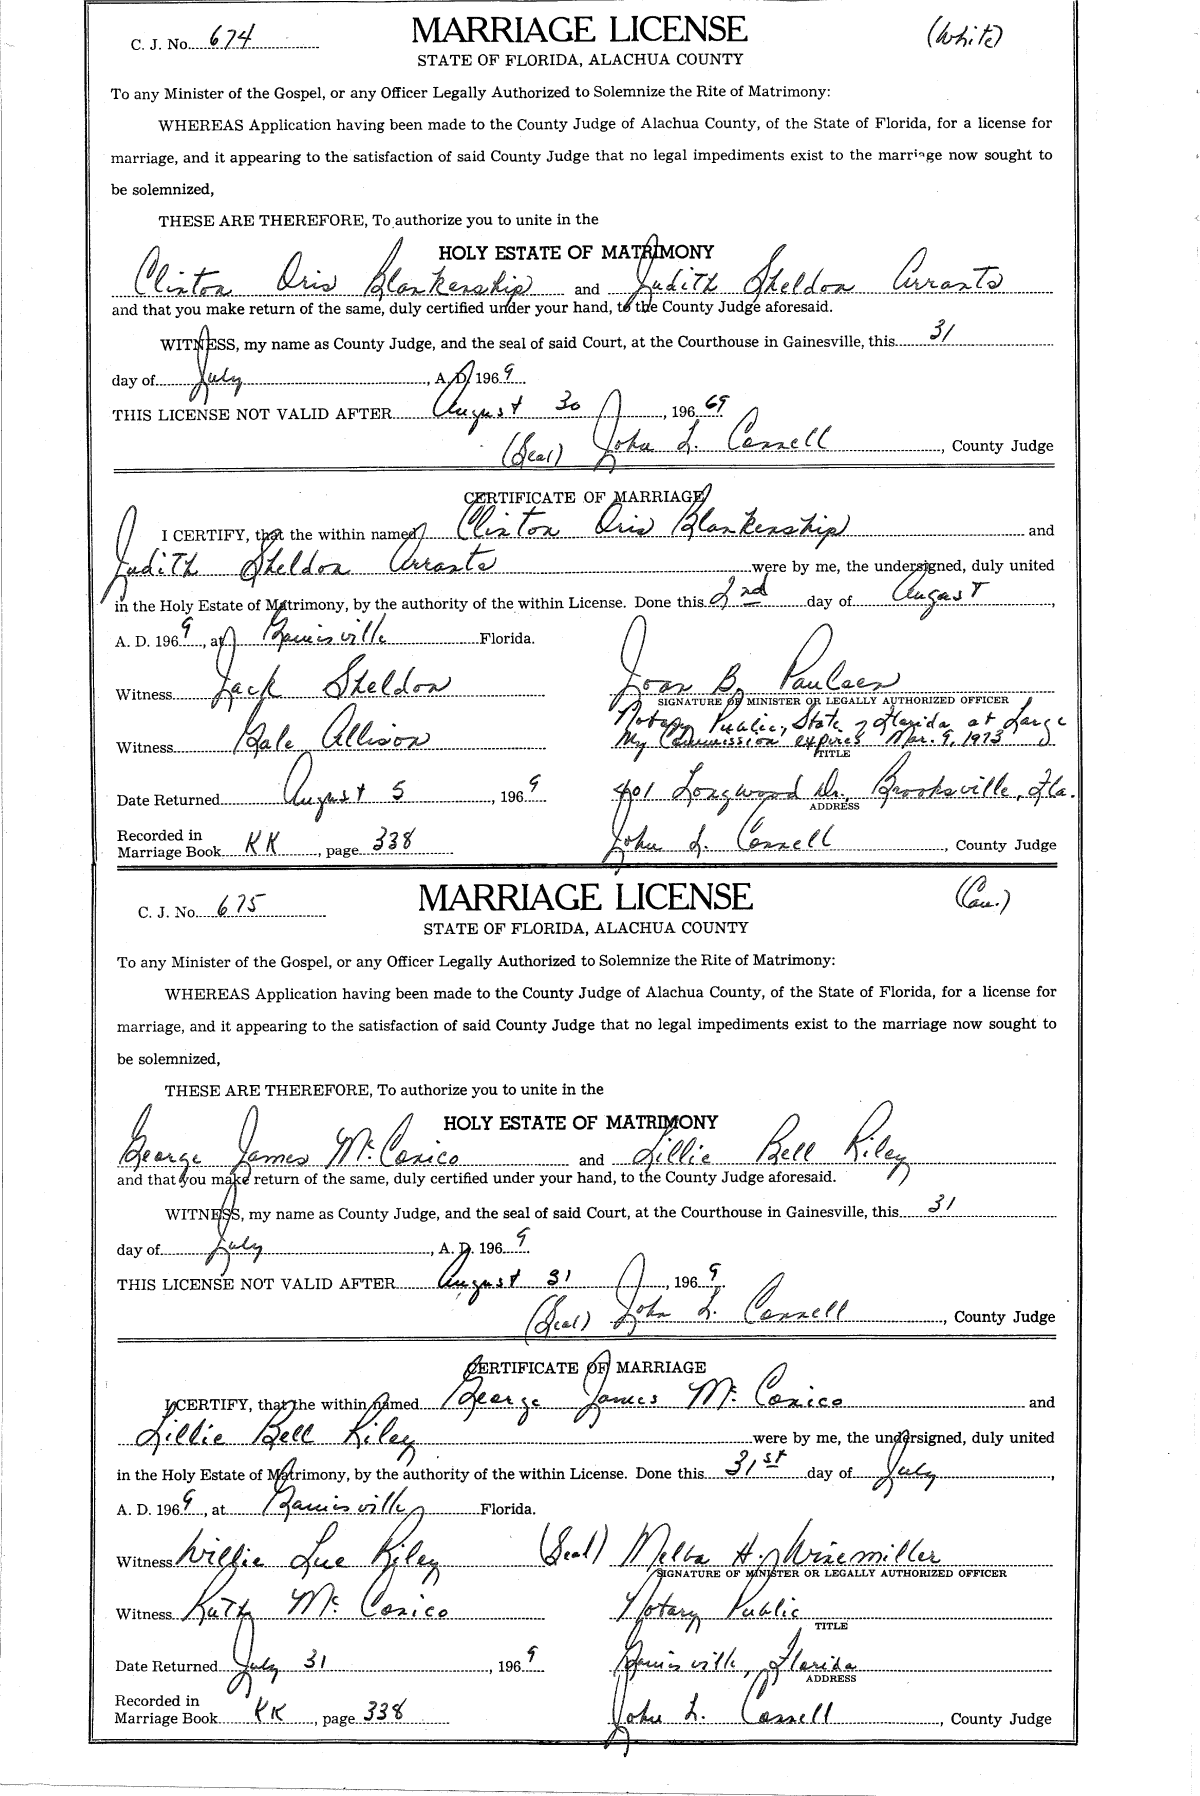 C. J. No. 674 MARRIAGE LICENSE (White)
STATE OF FLORIDA, ALACHUA COUNTY
To any Minister of the Gospel, or any Officer Legally Authorized to Solemnize the Rite of Matrimony:
WHEREAS Application having been made to the County Judge of Alachua County, of the State of Florida, for a license for
marriage, and it appearing to the satisfaction of said County Judge that no legal impediments exist to the marriage now sought to
be solemnized,
THESE ARE THEREFORE, To authorize you to unite in the
HOLY ESTATE OF MATRIMONY
Clinton Oris Blankenship and Judith Sheldon Arrants
and that you make return of the same, duly certified under your hand, to the County Judge aforesaid.
WITNESS, my name as County Judge, and the seal of said Court, at the Courthouse in Gainesville, this 31
day of July, A. D. 196 9
THIS LICENSE NOT VALID AFTER August 30, 196 69
(Seal) John L. Connell, County Judge
CERTIFICATE OF MARRIAGE
I CERTIFY, that the within named Clinton Oris Blankenship and
Judith Sheldon Arrants were by me, the undersigned, duly united
in the Holy Estate of Matrimony, by the authority of the within License. Done this 2nd day of August,
A. D. 196 9, at Gainesville Florida.
Witness Jack Sheldon Joan B. Paulsen
SIGNATURE OF MINISTER OR LEGALLY AUTHORIZED OFFICER
Notary Public, State of Florida at Large
Witness Gale Allison My Commission expires Mar. 9, 1973
TITLE
Date Returned August 5, 196 9 401 Longwood Dr., Brooksville, Fla.
ADDRESS
Recorded in
Marriage Book KK, page 338 John L. Connell, County Judge
C. J. No. 675 MARRIAGE LICENSE (Cau.)
STATE OF FLORIDA, ALACHUA COUNTY
To any Minister of the Gospel, or any Officer Legally Authorized to Solemnize the Rite of Matrimony:
WHEREAS Application having been made to the County Judge of Alachua County, of the State of Florida, for a license for
marriage, and it appearing to the satisfaction of said County Judge that no legal impediments exist to the marriage now sought to
be solemnized,
THESE ARE THEREFORE, To authorize you to unite in the
HOLY ESTATE OF MATRIMONY
George James McConico and Lillie Bell Riley
and that you make return of the same, duly certified under your hand, to the County Judge aforesaid.
WITNESS, my name as County Judge, and the seal of said Court, at the Courthouse in Gainesville, this 31
day of July, A. D. 196 9
THIS LICENSE NOT VALID AFTER August 31, 196 9
(Seal) John L. Connell, County Judge
CERTIFICATE OF MARRIAGE
I CERTIFY, that the within named George James McConico and
Lillie Bell Riley were by me, the undersigned, duly united
in the Holy Estate of Matrimony, by the authority of the within License. Done this 31st day of July,
A. D. 196 9, at Gainesville Florida.
Witness Willie Lue Riley (Seal) Melba H. Winemiller
SIGNATURE OF MINISTER OR LEGALLY AUTHORIZED OFFICER
Witness Ruth McConico Notary Public
TITLE
Date Returned July 31, 196 9 Gainesville, Florida
ADDRESS
Recorded in
Marriage Book KK, page 338 John L. Connell, County Judge